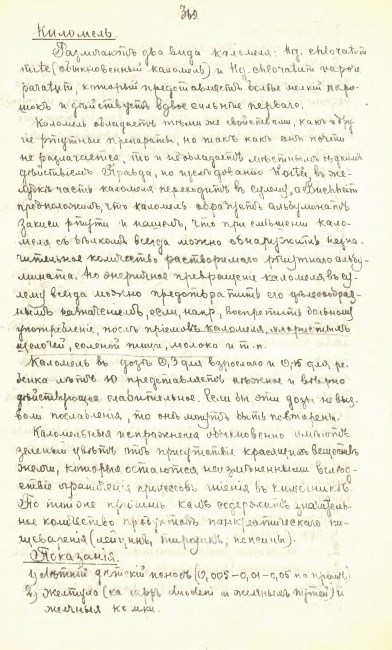 319.
Каломель.
Различаютъ два вида каломеля: Hg. chloratum
mite (обыкновенный каломель) и Hg. chloratum vapore
paratum, который представляетъ белѣе мелкій поро-
шокъ и дѣйствуетъ вдвое сильнѣе перваго.
Каломель обладаетъ тѣми же свойствами, какъ и дру-
гіе ртутные препараты, но такъ какъ онъ почти
не разлагается, то и не обладаетъ мѣстнымъ ѣдкимъ
дѣйствіемъ. Правда, по изслѣдованію въ же-
лудкѣ часть каломеля переходитъ въ сулему, а Buchheim
предположилъ, что каломель образуетъ альбуминатъ
закиси ртути и нашелъ, что при смѣшеніи кало-
меля съ бѣлкомъ всегда можно обнаружить незна-
чительное количество растворимаго ртутнаго альбу-
мината. Но энергичное превращеніе каломеля въ су-
лему всегда можно предотвратить его цѣлесообраз-
нымъ назначеніемъ, если, напр., воспретить больному
употребленіе, послѣ пріемовъ каломеля, хлористыхъ
щелочей, соленой пищи, молока и т. п.
Каломель въ дозѣ 0,3 для взрослаго и 0,15 для ре-
бенка лѣтъ 10 представляетъ нѣжное и вѣрно
дѣйствующее слабительное. Если бы эти дозы не выз-
вали послабленія, то онѣ могутъ быть повторены.
Каломельныя испражненія обыкновенно имѣютъ
зеленый цвѣтъ отъ присутствія красящихъ веществъ
желчи, которыя остаются неизмѣненными вслѣд-
ствіе ограниченія процессовъ гніенія въ кишечникѣ.
По той же причинѣ калъ содержитъ значитель-
ное количество продуктовъ панкреатическаго пи-
щеваренія (лейцинъ, тирозинъ, пептоны).
Показанія.
1) Лѣтній дѣтскій поносъ (0,005–0,01–0,05 по пріему)
2) Желтуха (катарръ duodeni и желчныхъ путей) и
желчные камни.